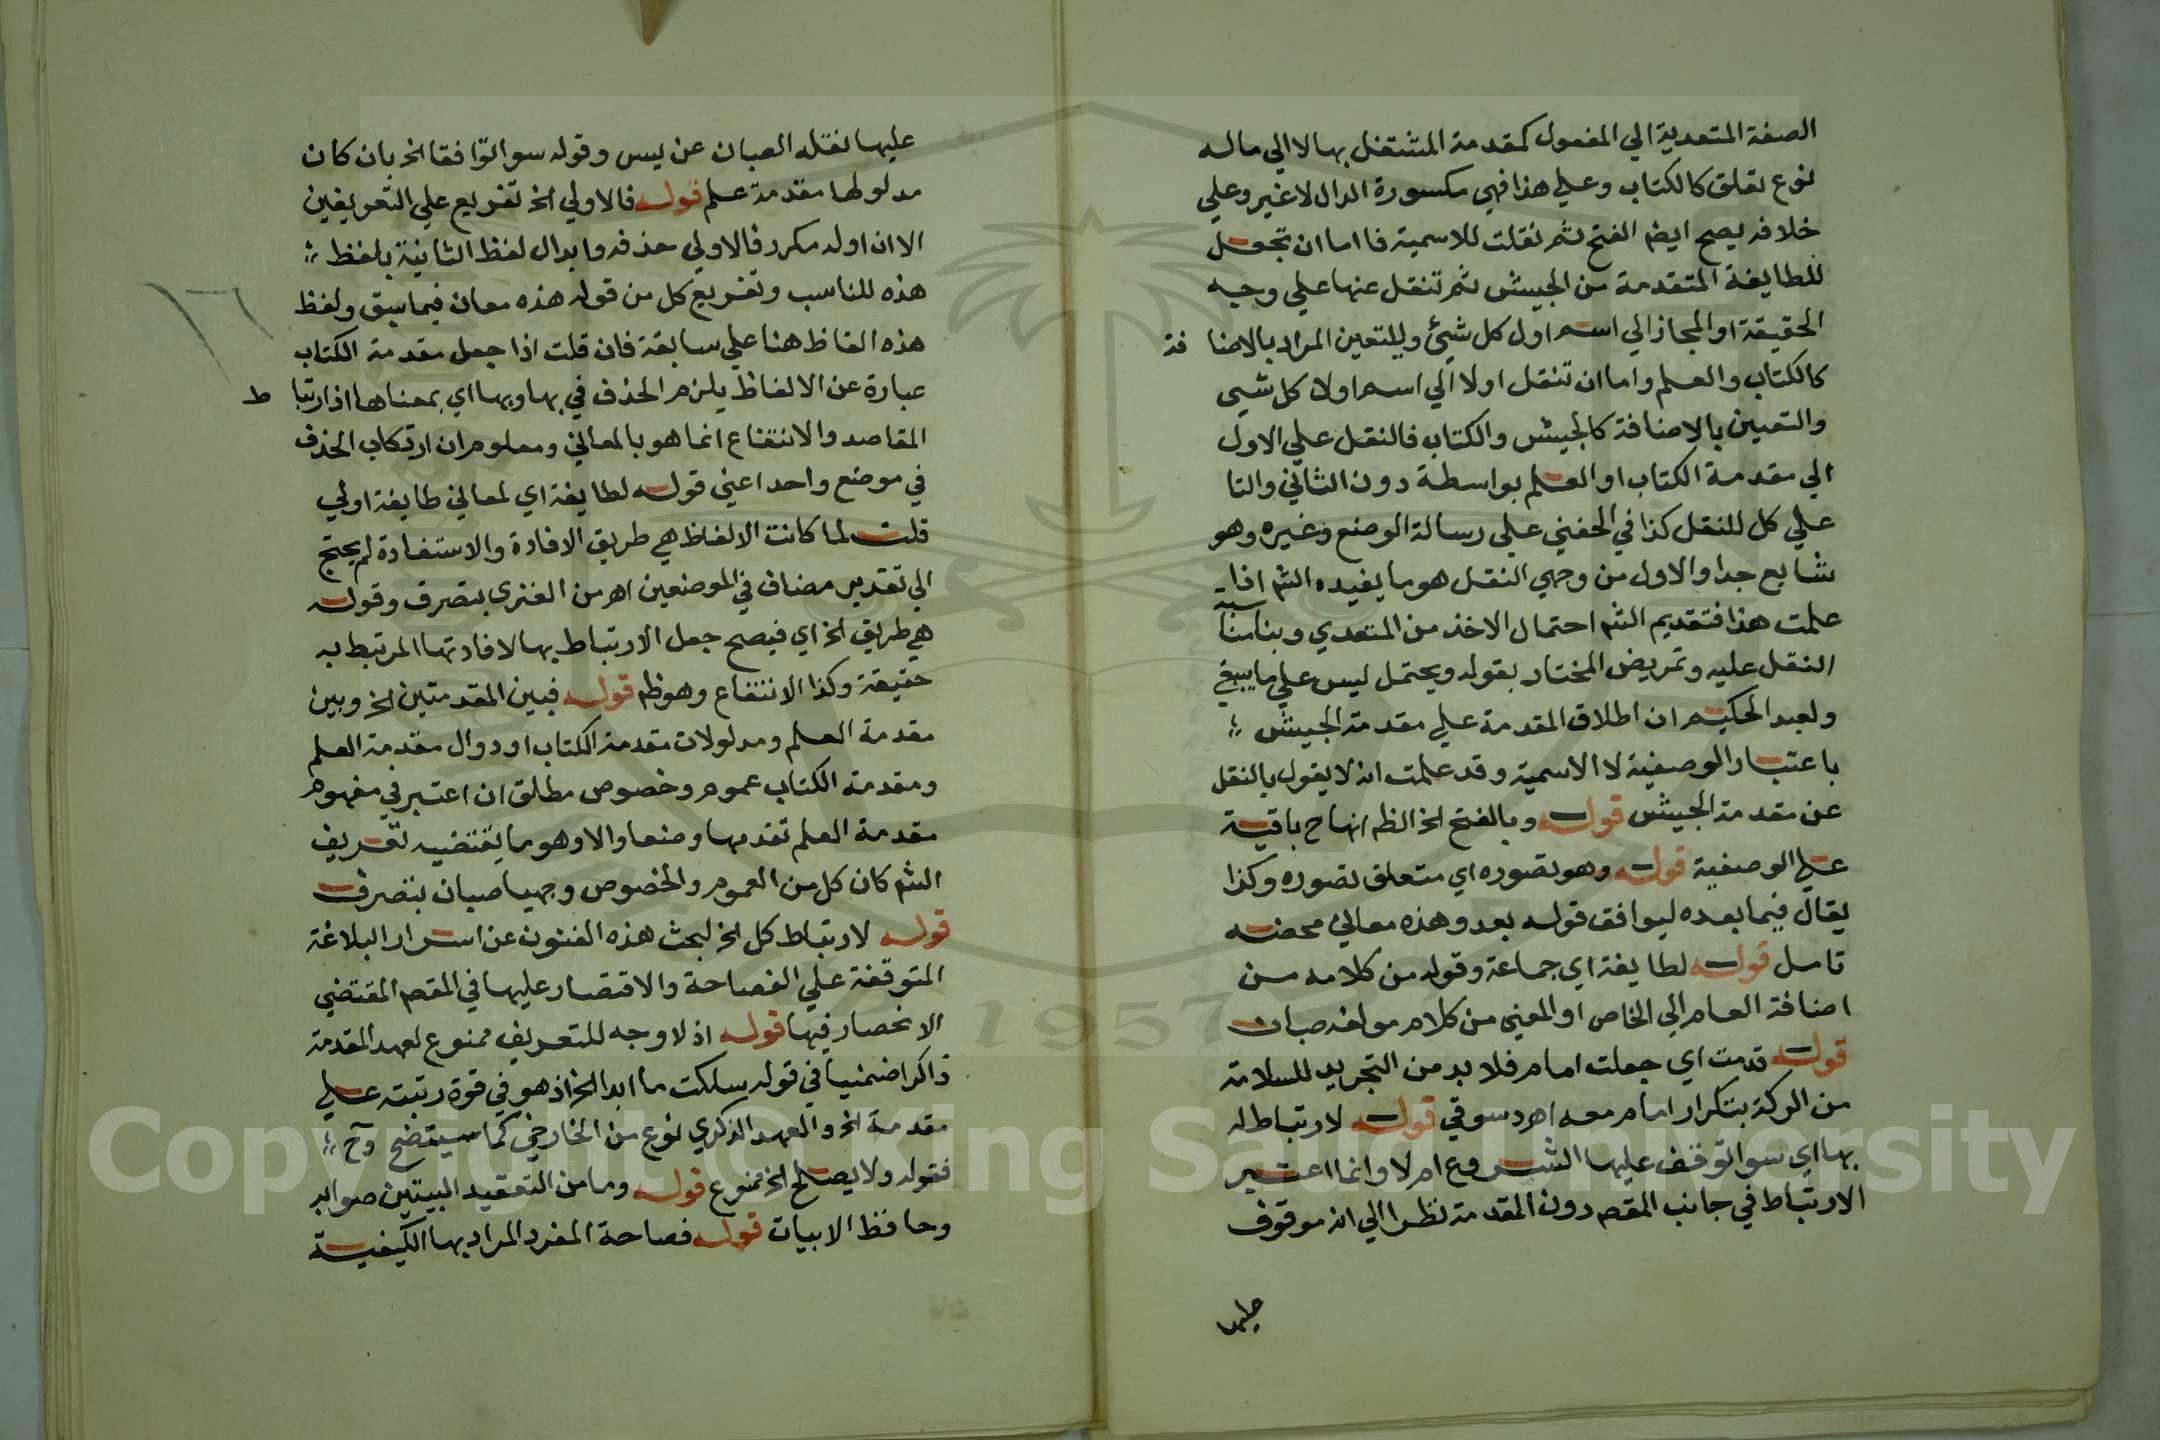 الصفة المتعدية الي المفعول كمقدمة المشتغل بها لا الي ماله
نوع تعلق كالكتاب وعلي هذا فهي مكسورة الدال لا غير وعلي
خلافه يصح ايضم الفتح ثم نقلت للاسمية فاما ان تجعل
للطايفة المتقدمة من الجيش ثم تنقل عنها علي وجه
الحقيقة او المجاز الي اسم اول كل شيئ وللتعين المراد بالاضا فة
كالكتاب والعلم واما ان تنقل اولا الي اسم اول كل شيي
والتعيين بالاضافة كالجيش والكتاب فالنقل علي الاول
الي مقدمة الكتاب او العلم بواسطة دون الثاني والتا
علي كل للنقل كذا في الحفني علي رسالة الوضع وغيره وهو
شايع جدا والاول من وجهي النقل هو ما يفيده الشم اذا
علمت هذا فتقديم الشم احتمال الاخذ من المتعدي وبنا
النقل عليه وتمريض المختار بقوله ويحتمل ليس علي ما ينبغي
ولعبد الحكيم ان اطلاق المقدمة علي مقدمة الجيش
باعتبار الوصفية لا الاسمية وقد علمت انه لا يقول بالنقل
عن مقدمة الجيش قوله وبالفتح الخ الظم انها ح باقية
علي الوصفية قوله وهو تصوره اي متعلق تصوره وكذا
يقال فيما بعده ليوافق قوله بعد وهذه معاني محضه
تامل قوله لطايفة اي جماعة وقوله من كلامه من
اضافة العام الي الخاص او المعني من كلام مولفه صبان
قوله قدمت اي جعلت امام فلا بد من التجريد للسلامة
من الركة بتكرار امام معه اهـ دسوقي قوله لارتباط له
بها اي سوا توقف عليها الشروع ام لا وانما اعتبر
الارتباط في جانب المقصم دون المقدمة نظرا الي انه موقوف
عليها
عليها نقله الصبان عن يس وقوله سوا توافقا الخ بان كان
مدلولها مقدمة علم قوله فالاولي الخ تفريع علي التعريفين
الا ان اوله مكرر فالاولي حذفه وابدال لفظ الثانية بلفظ
هذه للناسب وتفريع كل من قوله هذه معان فيما سبق ولفظ
هذه الفاظ هنا علي سابقة فان قلت اذا جعل مقدمة الكتاب
عبارة عن الالفاظ يلزم الحذف في بها وبها اي بمعناها اذ ارتبا ط
المقاصد والانتفاع انما هو بالمعاني ومعلوم ان ارتكاب الحذف
في موضع واحد اعني قوله لطايفة اي لمعاني طايفة اولي
قلت لما كانت الالفاظ هي طريق الافادة والاستفادة لم يحتج
الي تقدير مضاف في الموضعين اهـ من الفنري بتصرف وقوله
هي طريق الخ اي فيصح جعل الارتباط بها لافادتها المرتبط به
حقيقة وكذا الانتفاع وهو ظم قوله فبين المقدمتين الخ وبين
مقدمة العلم ومدلولات مقدمة الكتاب او دوال مقدمة العلم
ومقدمة الكتاب عموم وخصوص مطلق ان اعتبر في مفهوم
مقدمة العلم تقدمها وضعا والا وهو ما يقتضيه تعريف
الشم كان كل من العموم والخصوص وجهيا صبان بتصرف
قوله لارتباط كل الخ لبحث هذه الفنون عن اسرار البلاغة
المتوقفة علي الفصاحة والاقتصار عليها في المقصم المقتضي
الانحصار فيها قوله اذ لا وجه للتعريف ممنوع لعهد المقدمة
ذاكرا ضمنيا في قوله سلكت ما ابدا الخ اذ هو في قوة رتبته علي
مقدمة الخ والعهد الذكري نوع من الخارجي كما سيتضح وح
فقوله ولا يصلح الخ ممنوع قوله وما من التعقيد البيتين صوابه
وحافظ الابيات قوله فصاحة المفرد المراد بها الكيفية
Copyright © King Saud University
1957